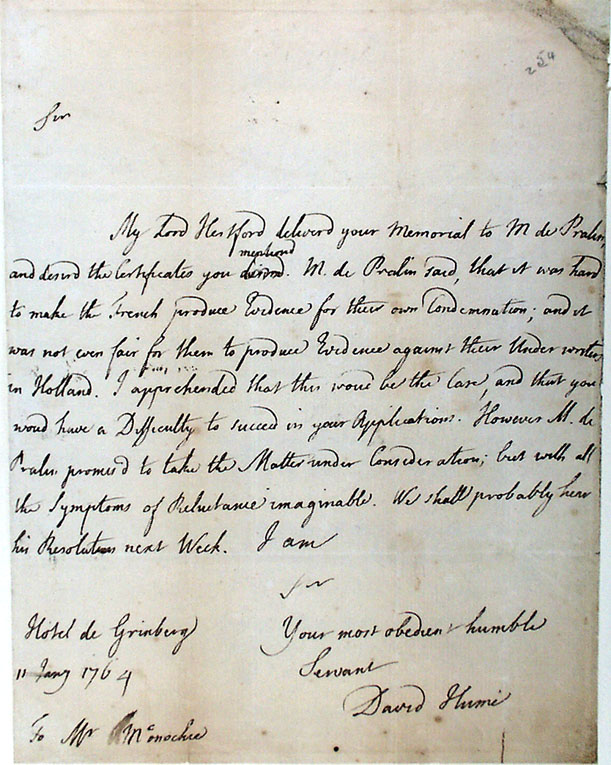 254
Sir
My Lord Hertford deliverd your Memorial to M de Pralin
mentiond
and desird the Certificates you desird. M. de Pralin said, that it was hard
to make the French produce Evidence for their own Condemnation; and it
was not even fair for them to produce Evidence against their Under writers
in Holland. I apprehended that this woud be the Case, and that you
woud have a Difficulty to succeed in your Applications. However M. de
Pralin promis'd to take the Matter under Consideration; but with all
the Symptoms of Reluctance imaginable. We shall probably hear
his Resolution next Week. I am
Sir
Hotel de Grinberg
Your most obedient humble
Servant
11 Jany 1764
David Hume
To Mr Mconochie